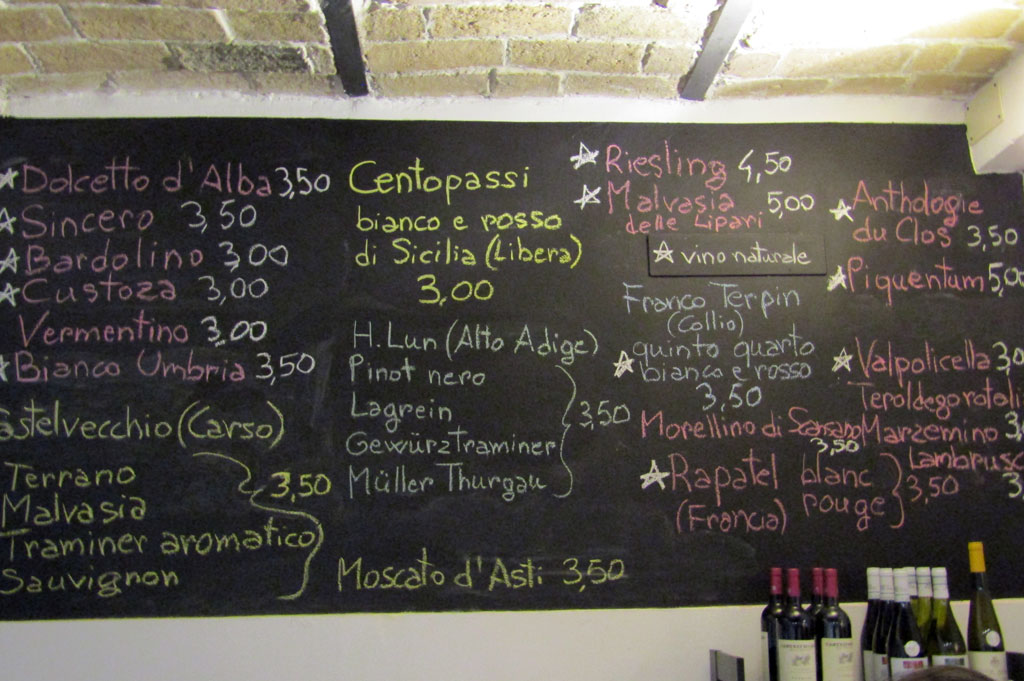 Dolcetto d'Alba 3,50
Sincero 3,50
Bardolino 3,00
Custoza 3,00
Vermentino 3.00
Bianco Umbria 3,50
astelvecchio (Carso)
Terrano
Malvasia
Traminer aromatico
Sauvignon
3,50
Centopassi
bianco e rosso
di Sicilia (Libera)
3.00
H. Lun (Alto Adige)
Pinot nero
Lagrein
Gewürztraminer
Müller Thurgau
3,50
Moscato d'Asti 3,50
Riesling 4,50
Malvasia 5,00
delle Lipari
vino naturale
Franco Terpin
(Collio)
quinto quarto
bianco e rosso
3,50
Morellino di
3,50
Rapatel blanc
rouge
(Francia)
3,50
Anthologie
du Clos 3,50
Piquentum 5,0
Valpolicella 3,0
Teroldego rotali
Marzemino 3,
Lambrusc
3,